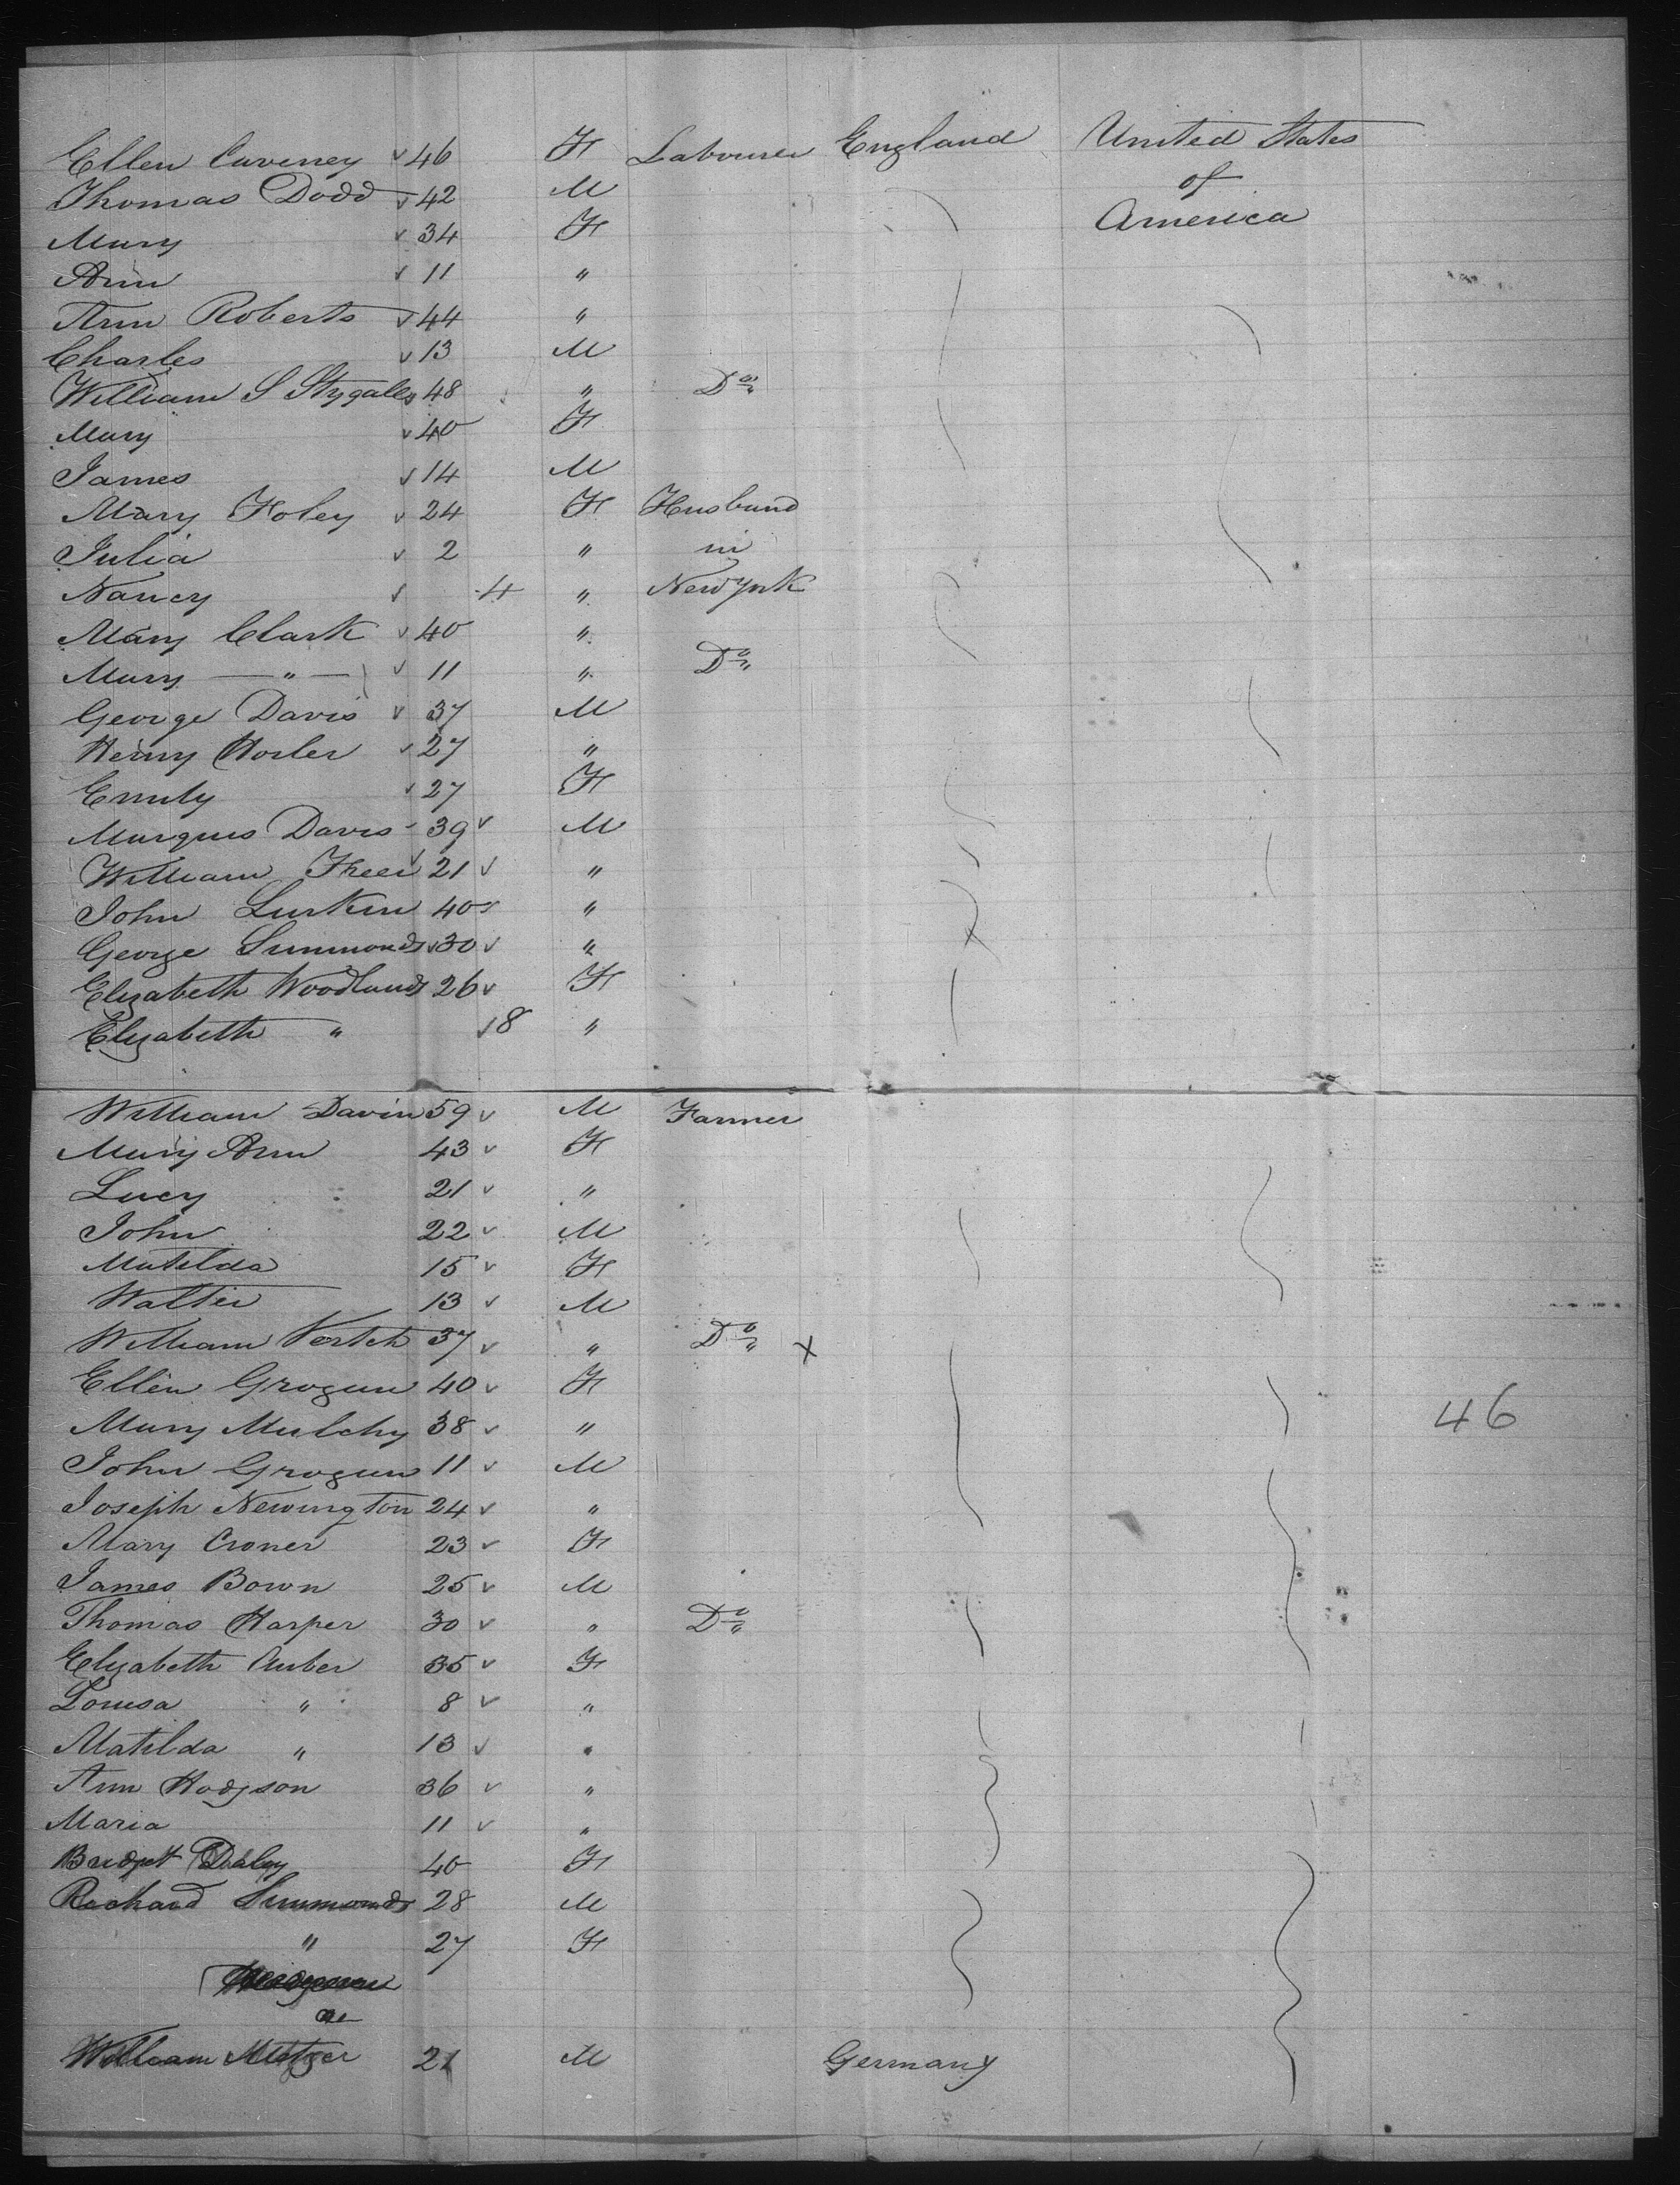 Ellen Caveney 46 F Labourer England United States
Thomas Dodd 42 M of
Mary 34 F America
Ann 11 "
Ann Roberts 44 "
Charles 13 M
William S Stygalls 48 " Do
Mary 40 F
James 14 M
Mary Foley 24 F Husband
Julia 2 " in
Nancy 4 " New York
Mary Clark 40 "
Mary — " — 11 " Do
George Davis 37 M
Henry Horler 27 "
Emily 27 F
Marquis Davis 39 M
William Freer 21 "
John Lurkin 40 "
George Simmonds 30 "
Elizabeth Woodlands 26 F
Elizabeth " 8 "
William Davin 59 M Farmer
Mary Ann 43 F
Lucy 21 "
John 22 M
Matilda 15 F
Walter 13 M
William 37 " Do X
Ellen Grogan 40 F
Mary Mulchy 38 " 46
John Grogan 11 M
Joseph Newington 24 "
Mary Croner 23 F
James Bown 25 M
Thomas Harper 30 " Do
Elizabeth Auber 35 F
Louisa " 8 "
Matilda " 13 "
Ann Hodgson 36 "
Maria 11 "
Bridget Daley 40 F
Richard Simmonds 28 M
" 27 F
William Metzger 21 M Germany